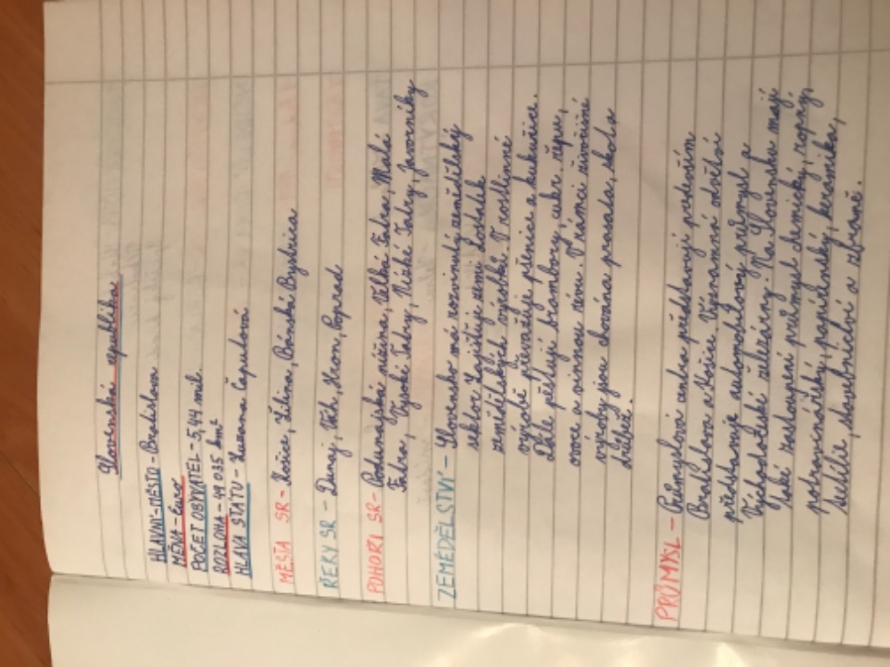 Slovenská republika
HLAVNÍ MĚSTO - Bratislava
MĚNA - Euro
POČET OBYVATEL - 5,44 mil.
ROZLOHA - 49 035 km²
HLAVA STÁTU - Zuzana Čaputová
MĚSTA SR - Košice, Žilina, Bánská Bystrica
ŘEKY SR - Dunaj, Váh, Hron, Poprad
POHOŘÍ SR - Podunajská nížina, Velká Fatra, Malá
Fatra, Vysoké Tatry, Nízké Tatry, Javorníky
ZEMĚDĚLSTVÍ - Slovensko má rozvinutý zemědělský
sektor. Zajišťuje zemi dostatek
zemědělských výrobků. V rostlinné
výrobě převažuje pšenice a kukuřice.
Dále pěstují brambory, cukr. řepu,
ovoce a vinnou révu. V rámci živočišné
výroby jsou chována prasata, skot a
drůbež.
PRŮMYSL - Průmyslová centra představují především
Bratislava a Košice. Významná odvětví
představuje automobilový průmysl a
Východočeské železárny. Na Slovensku mají
také zastoupení průmysl chemický, ropný,
potravinářský, papírenský, keramika,
textilie, stavebnictví a zbraně.